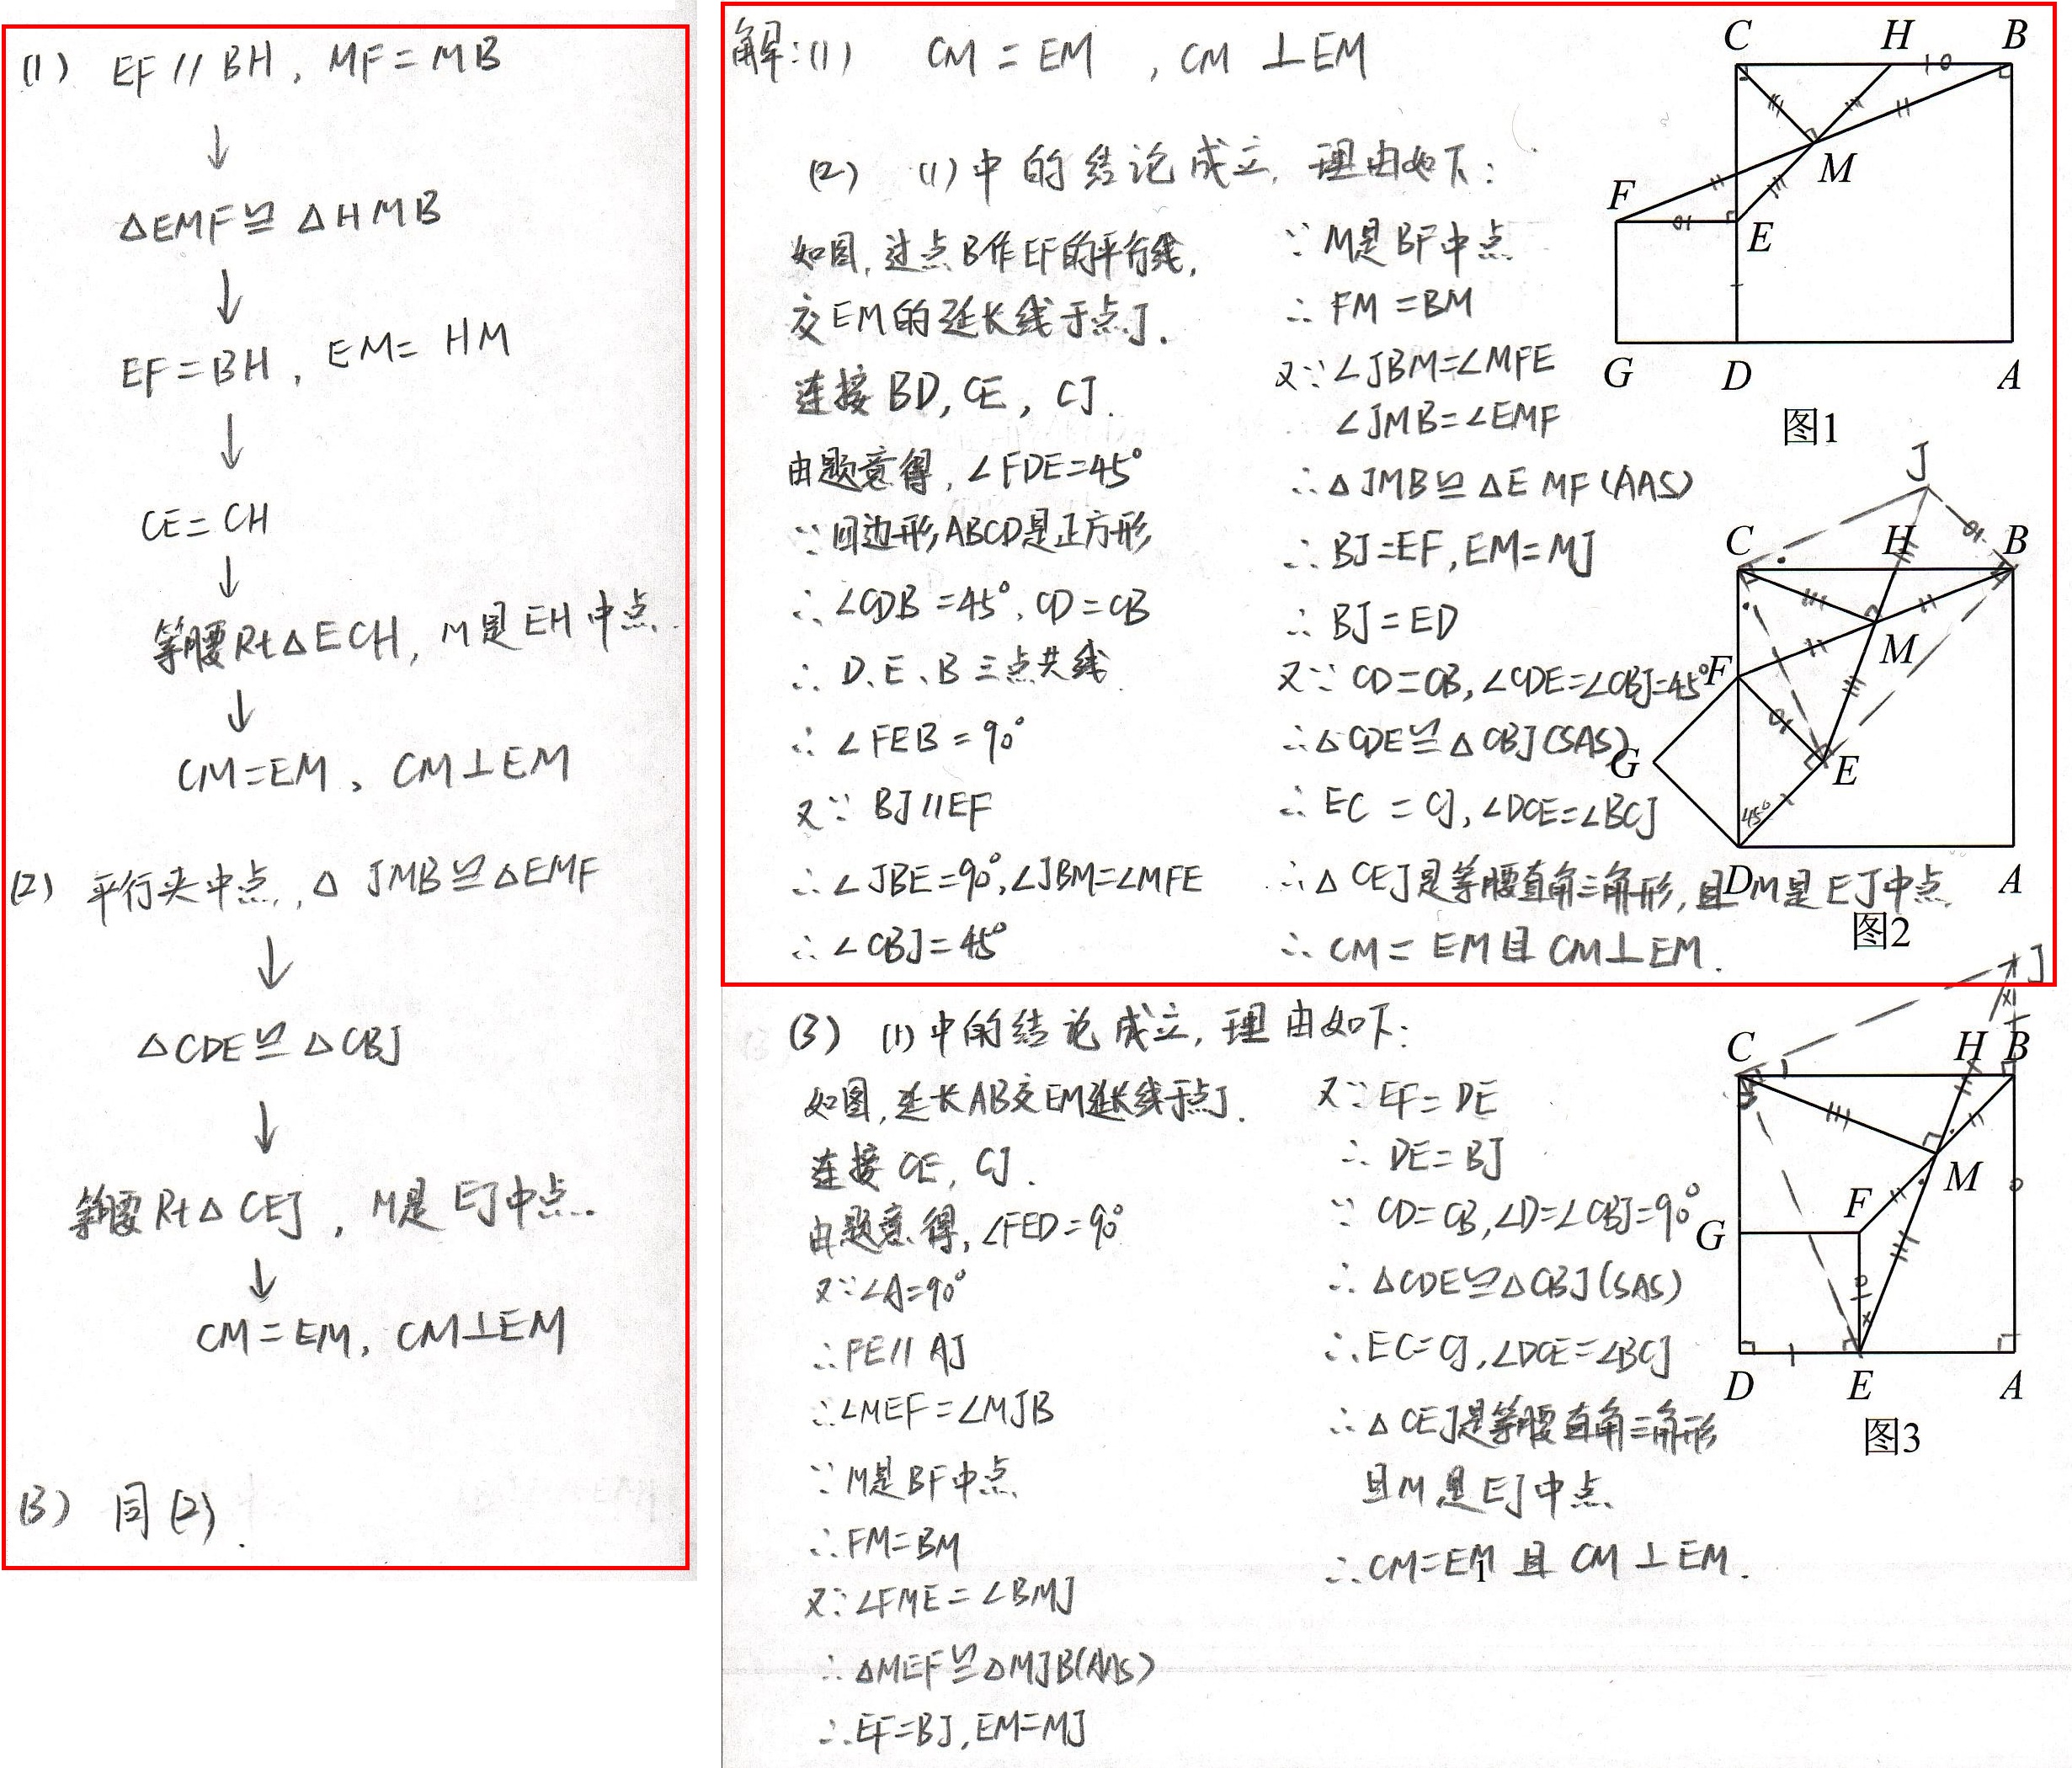 (1) EF // BH , MF = MB
↓
△EMF≌△HMB
↓
EF=BH , EM= HM
↓
CE= CH
↓
等腰Rt△ECH, M是EH中点.
↓
CM=EM、CM⊥EM
(2) 平行夹中点, △JMB≌△EMF
↓
△CDE≌△CBJ
↓
等腰Rt△CEJ , M是EJ中点.
↓
CM=EM, CM⊥EM
(3) 同(2).
解:(1) CM = EM , CM ⊥EM
(2) (1)中的结论成立, 理由如下:
如图,过点B作EF的平行线,
交EM的延长线于点J.
连接BD, CE, CJ.
由题意得, ∠FDE=45°
∵四边形ABCD是正方形
∴∠CDB=45°, CD=CB
∴ D、E、B三点共线
∴ ∠FEB=90°
又∵ BJ//EF
∴∠JBE=90°,∠JBM=∠MFE
∴∠CBJ=45°
∵ M是BF中点
∴ FM=BM
又∵∠JBM=∠MFE
∠JMB=∠EMF
∴△JMB≌△EMF(AAS)
∴ BJ=EF, EM=MJ
∴ BJ=ED
又∵ CD=CB,∠CDE=∠CBJ=45°
∴△CDE≌△CBJ(SAS)
∴ EC = CJ,∠DCE=∠BCJ
∴△CEJ是等腰直角三角形,且M是EJ中点
∴ CM= EM且CM⊥EM.
C H B
M
F
E
G D A
图1
J
C H B
M
F
G E
45°
D A
图2
(3) (1)中的结论成立,理由如下:
如图,延长AB交EM延长线于点J.
连接CE, CJ.
由题意得,∠FED=90°
又∵∠A=90°
∴FE//AJ
∴∠MEF=∠MJB
∵M是BF中点
∴FM=BM
又∵∠FME=∠BMJ
∴△MEF≌△MJB(AAS)
∴EF=BJ,EM=MJ
又∵EF=DE
∴ DE=BJ
∵ CD=CB,∠D=∠CBJ=90°
∴ △CDE≌△CBJ(SAS)
∴EC=CJ,∠DCE=∠BCJ
∴△CEJ是等腰直角三角形
且M是EJ中点
∴CM=EM 且 CM⊥EM.
1
J
C H B
M
F
G
D E A
图3